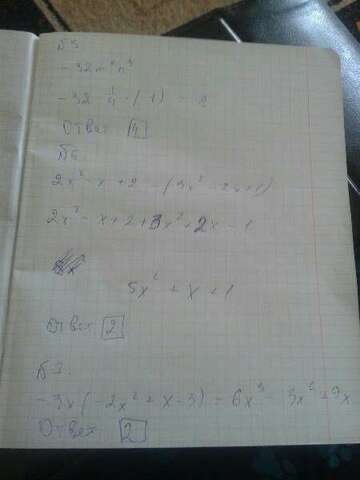 №5
-32m²n³
-32 1/4 · (-1) = 8
Ответ 4
№6
2x² - x + 2 - (-3x² - 2x + 1)
2x² - x + 2 + 3x² + 2x - 1
5x² + x + 1
Ответ 2
№7
-3x(-2x² + x - 3) = 6x³ - 3x² + 9x
Ответ 2